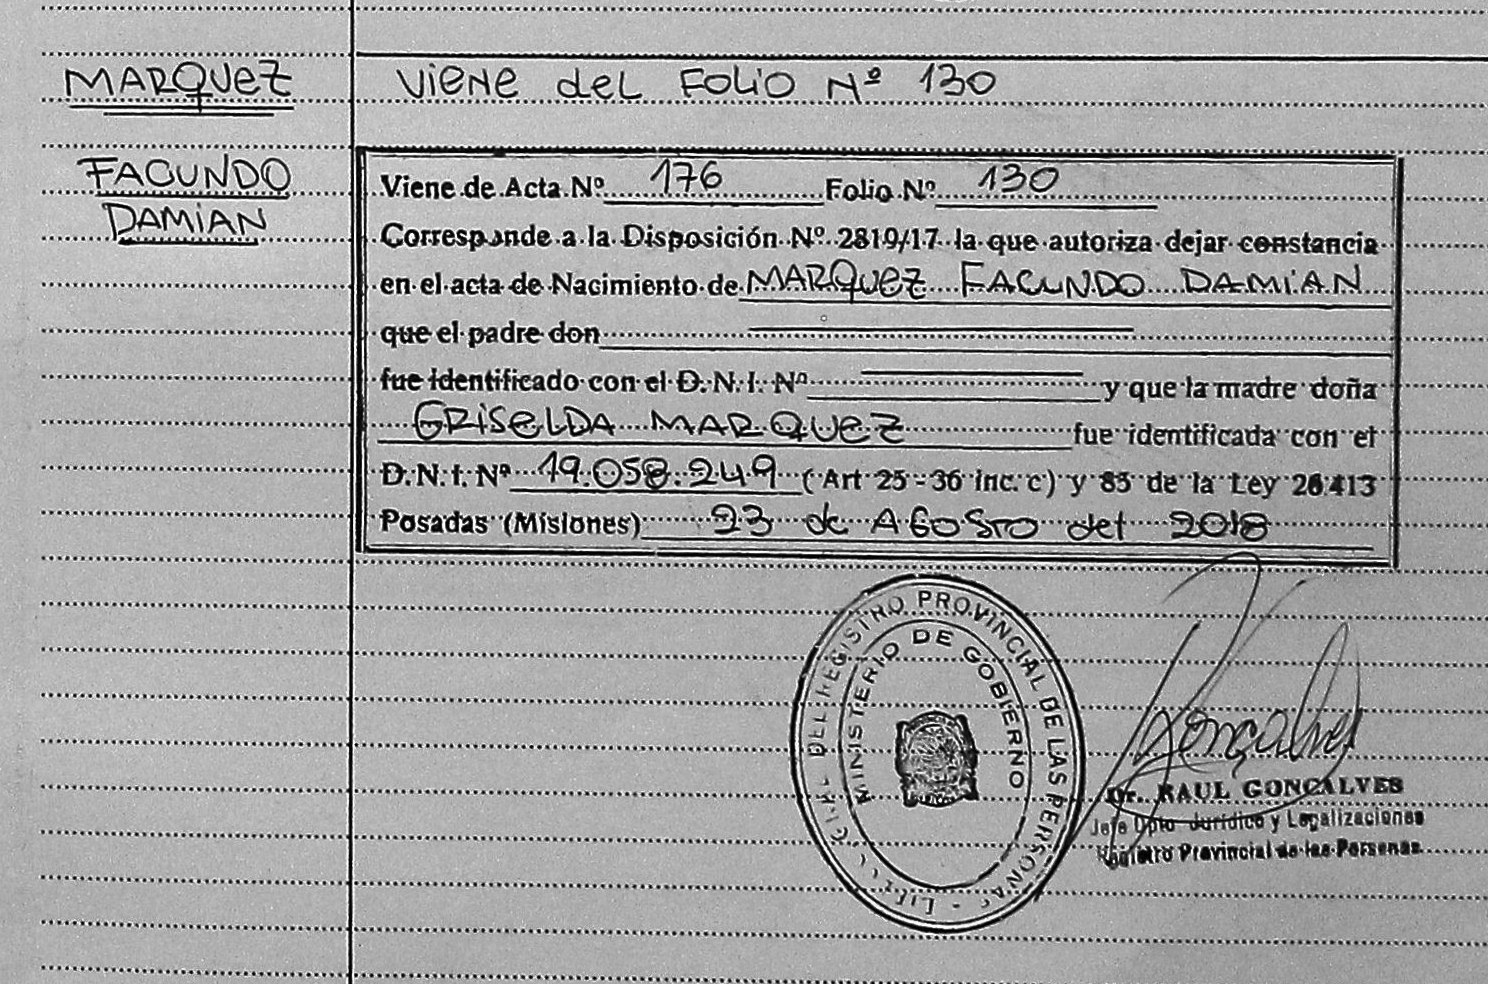 MARQUEZ
FACUNDO
DAMIAN
Viene del FOLIO Nº 130
Viene de Acta Nº 176 Folio Nº 130
Corresponde a la Disposición Nº 2819/17 la que autoriza dejar constancia
en el acta de Nacimiento de MARQUEZ FACUNDO DAMIAN
que el padre don
fue identificado con el D.N.I. Nº y que la madre doña
GRISELDA MARQUEZ fue identificada con el
D.N.I. Nº 19.058.249 (Art 25-36 inc. c) y 85 de la Ley 26413
Posadas (Misiones) 23 de AGOSTO del 2018
DEL REGISTRO PROVINCIAL DE LAS PERSONAS
MINISTERIO DE GOBIERNO
Gonçalves
Dr. RAUL GONCALVES
Jefe Dpto Jurídico y Legalizaciones
Registro Provincial de las Personas